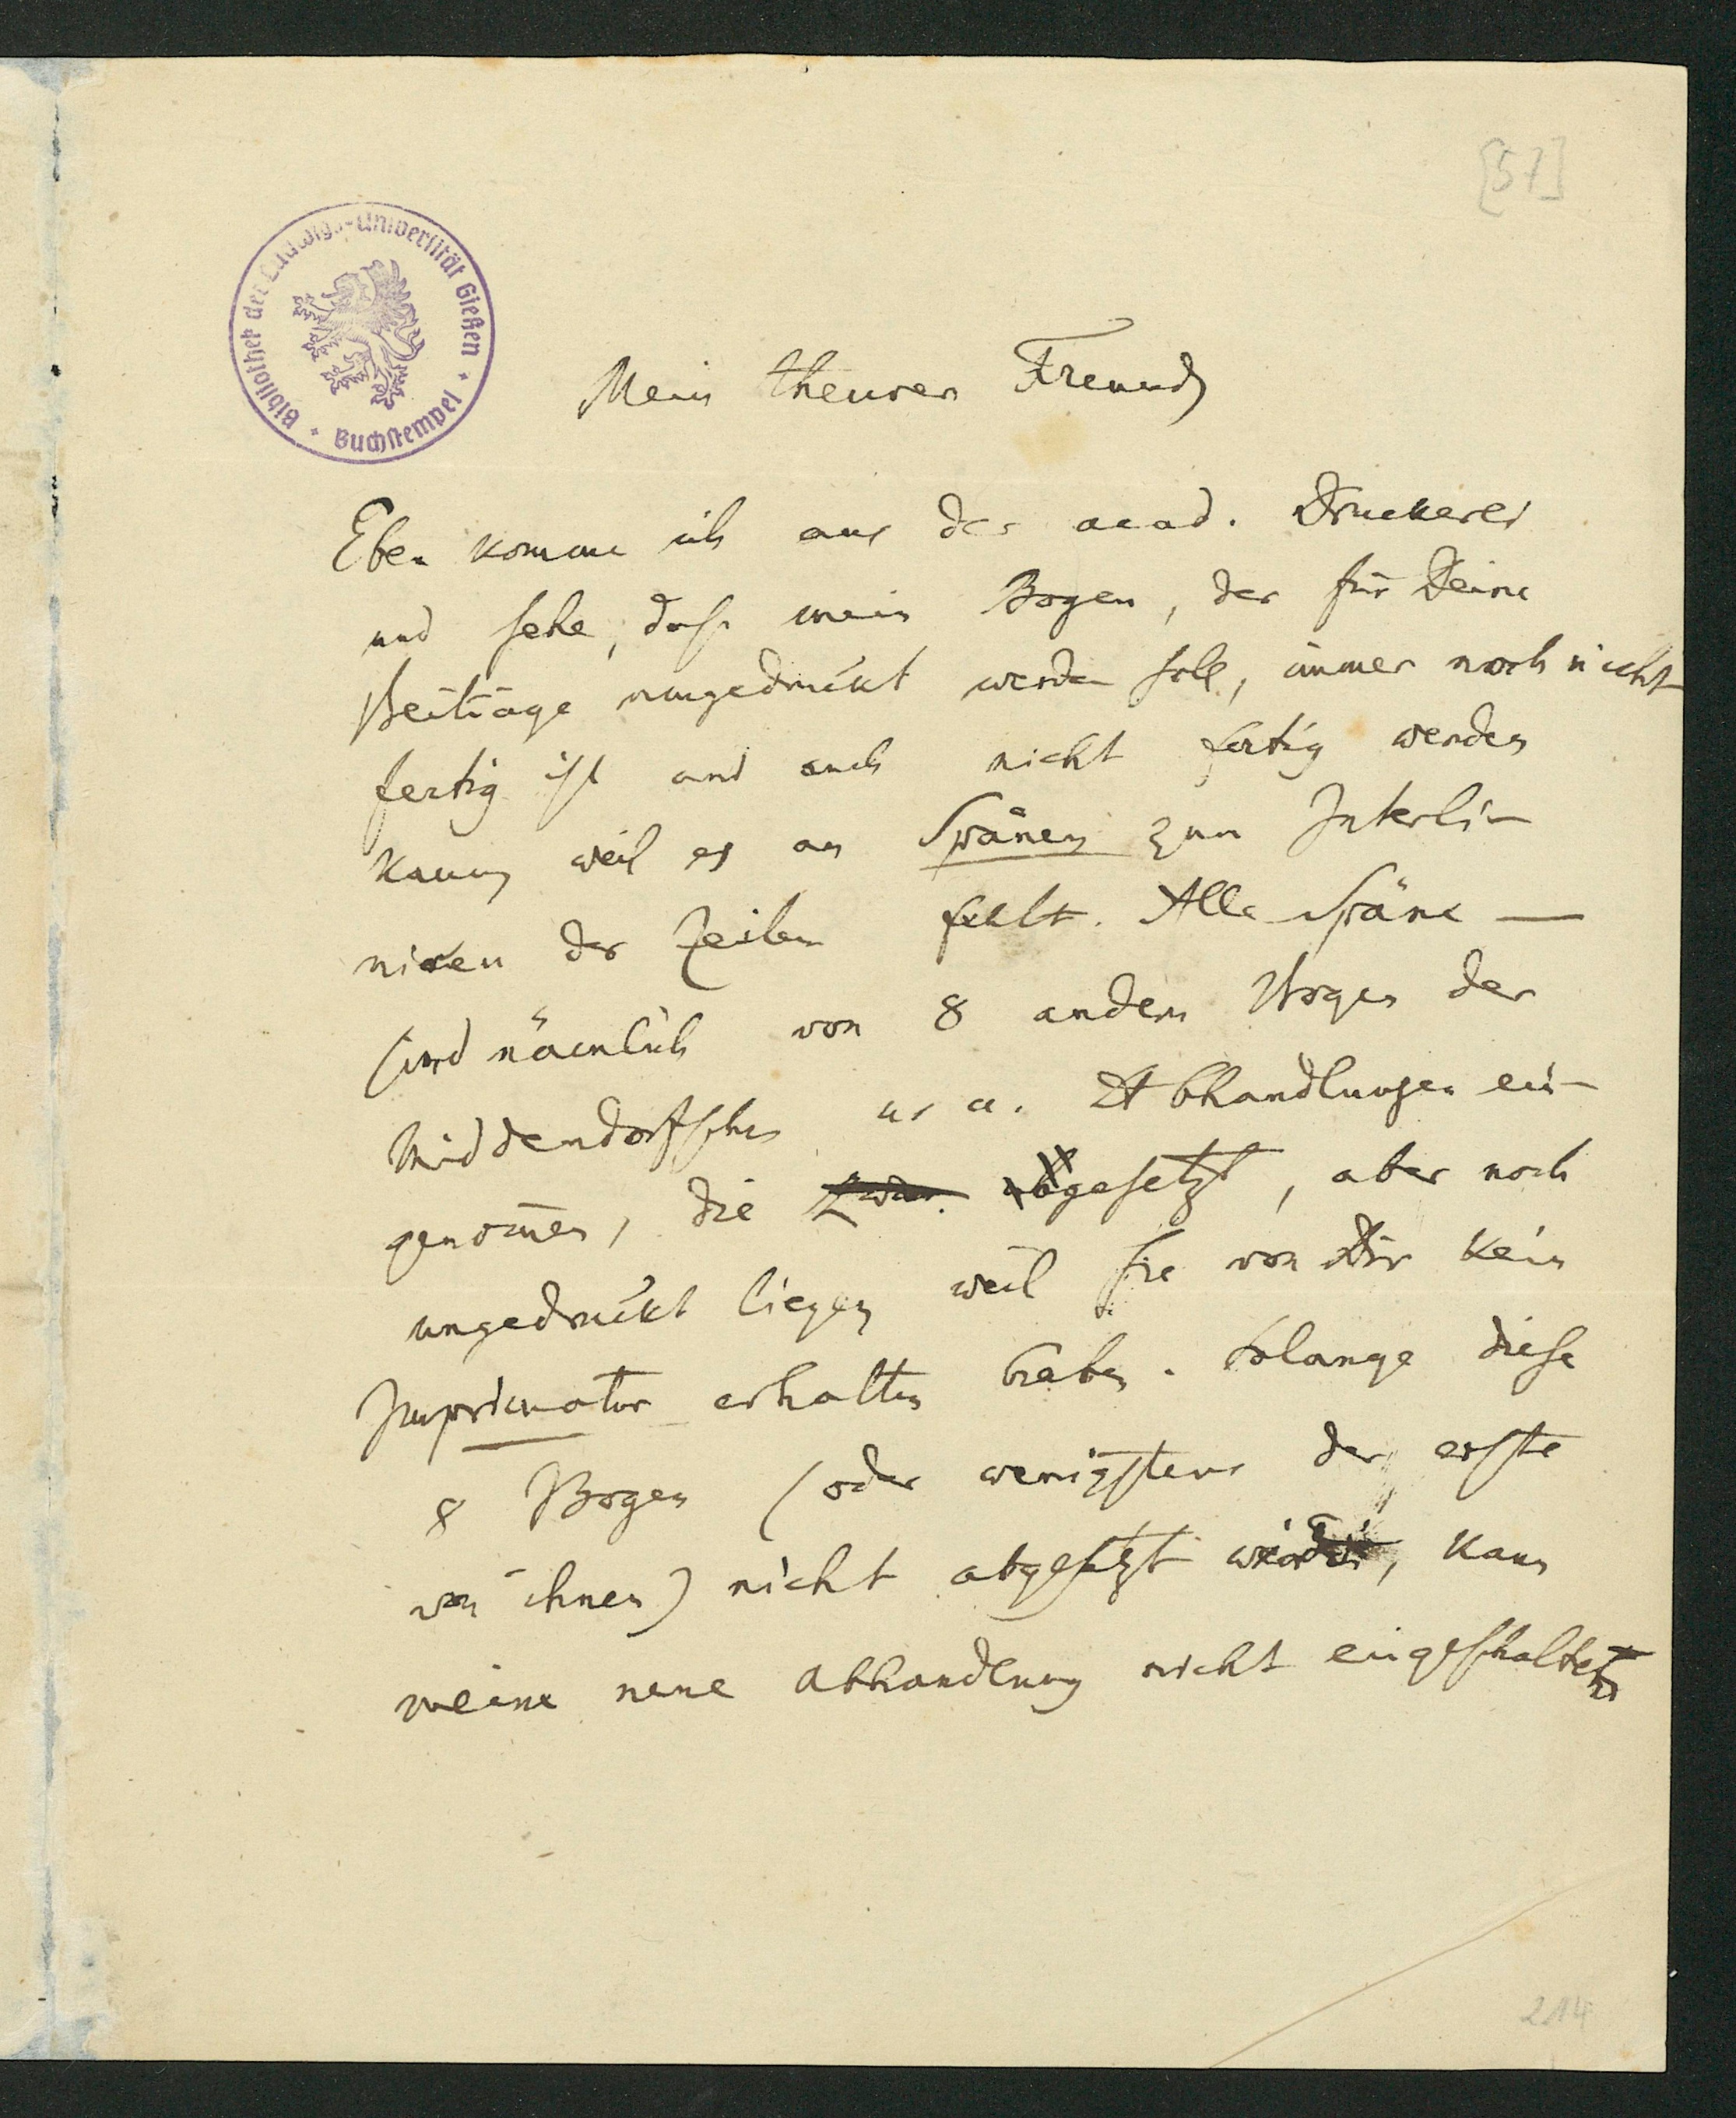 [57]
Bibliothek der Ludwigs-Universität Gießen
Buchstempel
Mein theurer Freund
Eben komme ich aus der acad. Druckerei
und sehe, daß mein Bogen, der für Deine
Beiträge umgedruckt werden soll, immer noch nicht
fertig ist und auch nicht fertig werden
kann weil es an Spänen zum Interli-
niren der Zeilen fehlt. Alle Späne
sind nämlich von 8 andern Bogen der
Middendorfschen u. a. Abhandlungen ein-
genom̅en, die zwar gesetzt, aber noch
ungedruckt liegen weil sie von Dir kein
Imprimatur erhalten haben. Solange diese
8 Bogen (oder wenigstens der erste
von ihnen) nicht abgesetzt, kann
meine neue Abhandlung nicht eingeschaltet
214